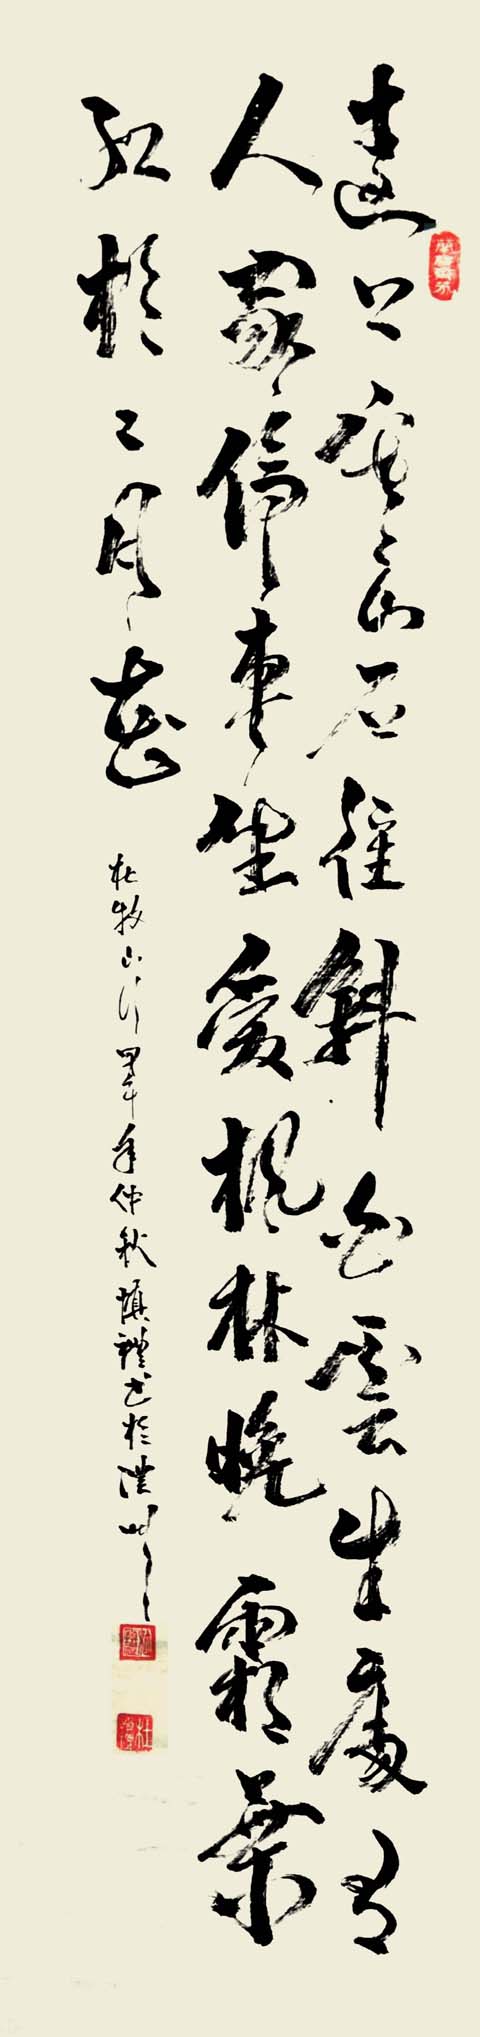 遠上寒山石徑斜白雲生處有
人家停車坐愛楓林晚霜葉
紅於二月花
杜牧山行年仲秋慎禮書於